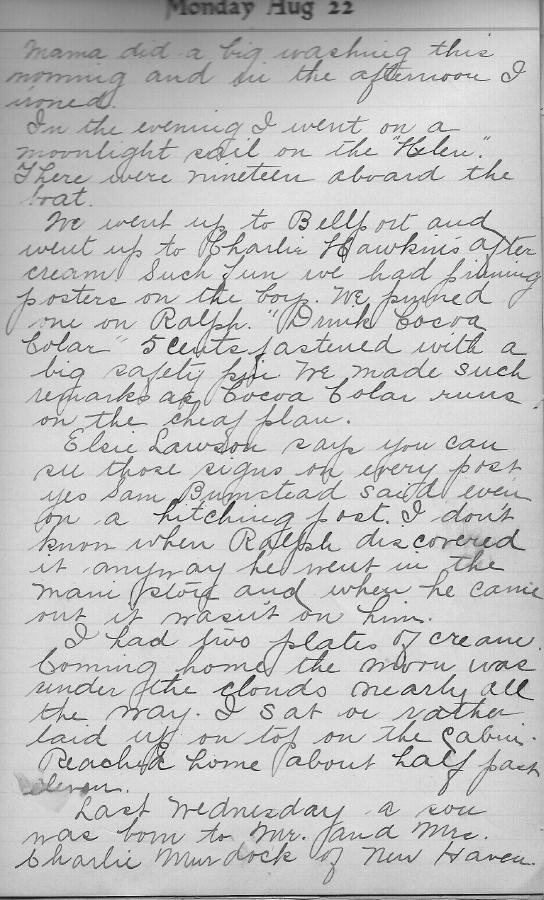 Monday Aug 22
Mama did a big washing this
morning and in the afternoon I
ironed.
In the evening I went on a
moonlight sail on the "Helen."
There were nineteen aboard the
boat.
We went up to Bellport and
went up to Charlie Hawkins after
cream. Such fun we had pinning
posters on the boys. We pinned
one on Ralph. "Drink Cocoa
Colar" 5 cents fastened with a
big safety pin. We made such
remarks as Cocoa Colar runs
on the cheap plan.
Elsie Lawson says you can
see those signs on every post
yes Sam Bumstead said even
on a hitching post. I don't
know when Ralph discovered
it anyway he went in the
main store and when he came
out it wasn't on him.
I had two plates of cream.
Coming home the moon was
under the clouds nearly all
the way. I sat or rather
laid up on top on the cabin.
Reached home about half past
eleven.
Last Wednesday a son
was born to Mr. and Mrs.
Charlie Murdock of New Haven.